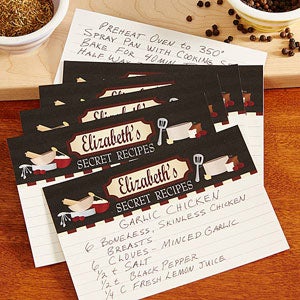 PREHEAT OVEN TO 350°
SPRAY PAN WITH COOKING
BAKE FOR 40 MIN
HALF WA
Elizabeth's
SECRET RECIPES
Elizabeth's
SECRET RECIPES
GARLIC CHICKEN
6 BONELESS, SKINLESS CHICKEN
BREASTS
6 CLOVES - MINCED GARLIC
1/2 t SALT
1/2 t BLACK PEPPER
1/4 C FRESH LEMON JUICE